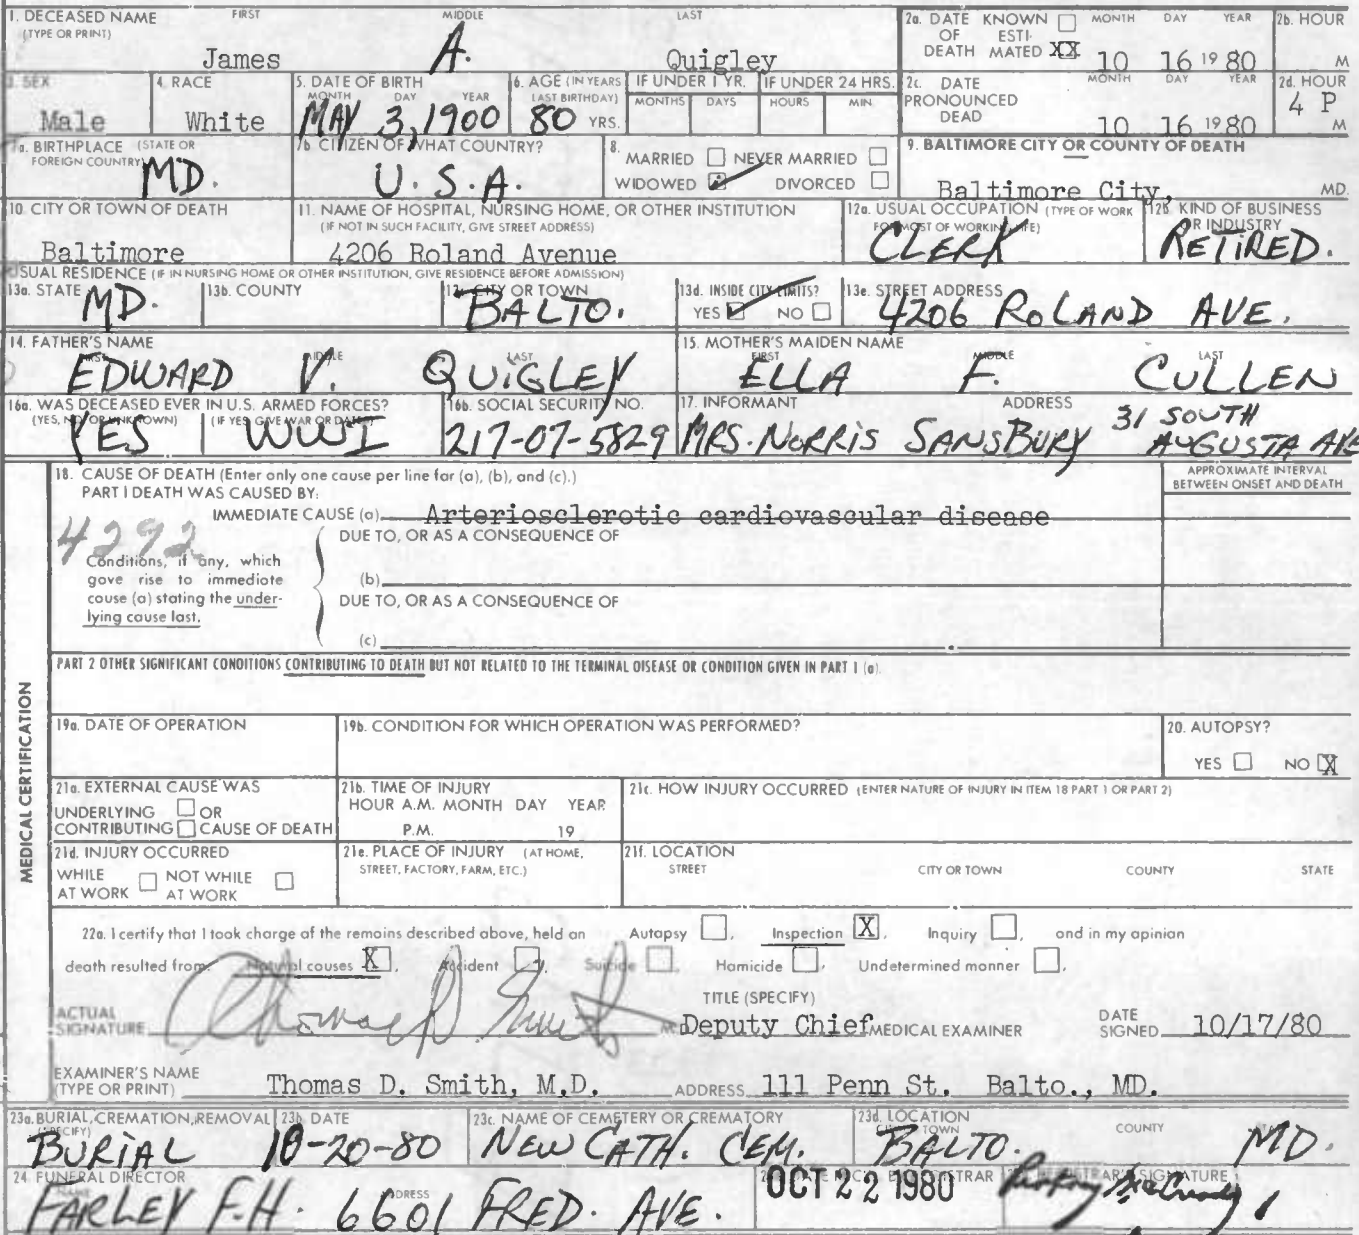 1. DECEASED NAME FIRST MIDDLE LAST
(TYPE OR PRINT)
James A. Quigley
2a. DATE OF DEATH KNOWN ☐ ESTIMATED XX MONTH DAY YEAR
10 16 19 80
2b. HOUR
M
3. SEX
Male
4. RACE
White
5. DATE OF BIRTH
MONTH DAY YEAR
MAY 3, 1900
6. AGE (IN YEARS LAST BIRTHDAY)
80 YRS.
IF UNDER 1 YR.
MONTHS DAYS
IF UNDER 24 HRS.
HOURS MIN
2c. DATE PRONOUNCED DEAD MONTH DAY YEAR
10 16 19 80
2d. HOUR
4 P M
7a. BIRTHPLACE (STATE OR FOREIGN COUNTRY)
MD.
7b. CITIZEN OF WHAT COUNTRY?
U.S.A.
8.
MARRIED ☐ NEVER MARRIED ☐
WIDOWED ☑ DIVORCED ☐
9. BALTIMORE CITY OR COUNTY OF DEATH
Baltimore City, MD.
10. CITY OR TOWN OF DEATH
Baltimore
11. NAME OF HOSPITAL, NURSING HOME, OR OTHER INSTITUTION
(IF NOT IN SUCH FACILITY, GIVE STREET ADDRESS)
4206 Roland Avenue
12a. USUAL OCCUPATION (TYPE OF WORK FOR MOST OF WORKING LIFE)
CLERK
12b. KIND OF BUSINESS OR INDUSTRY
RETIRED.
USUAL RESIDENCE (IF IN NURSING HOME OR OTHER INSTITUTION, GIVE RESIDENCE BEFORE ADMISSION)
13a. STATE
MD.
13b. COUNTY
13c. CITY OR TOWN
BALTO.
13d. INSIDE CITY LIMITS?
YES ☑ NO ☐
13e. STREET ADDRESS
4206 ROLAND AVE.
14. FATHER'S NAME
FIRST MIDDLE LAST
EDWARD V. QUIGLEY
15. MOTHER'S MAIDEN NAME
FIRST MIDDLE LAST
ELLA F. CULLEN
16a. WAS DECEASED EVER IN U.S. ARMED FORCES?
(YES, NO, OR UNKNOWN) (IF YES, GIVE WAR OR DATES)
YES WWI
16b. SOCIAL SECURITY NO.
217-07-5829
17. INFORMANT ADDRESS
MRS. NORRIS SANSBURY 31 SOUTH AUGUSTA AVE
MEDICAL CERTIFICATION
18. CAUSE OF DEATH (Enter only one cause per line for (a), (b), and (c).)
PART I DEATH WAS CAUSED BY:
APPROXIMATE INTERVAL BETWEEN ONSET AND DEATH
IMMEDIATE CAUSE (a) Arteriosclerotic cardiovascular disease
4292
DUE TO, OR AS A CONSEQUENCE OF
Conditions, if any, which gave rise to immediate cause (a) stating the underlying cause last.
(b)
DUE TO, OR AS A CONSEQUENCE OF
(c)
PART 2 OTHER SIGNIFICANT CONDITIONS CONTRIBUTING TO DEATH BUT NOT RELATED TO THE TERMINAL DISEASE OR CONDITION GIVEN IN PART 1 (a).
19a. DATE OF OPERATION
19b. CONDITION FOR WHICH OPERATION WAS PERFORMED?
20. AUTOPSY?
YES ☐ NO ☒
21a. EXTERNAL CAUSE WAS
UNDERLYING ☐ OR
CONTRIBUTING ☐ CAUSE OF DEATH
21b. TIME OF INJURY
HOUR A.M. MONTH DAY YEAR
P.M. 19
21c. HOW INJURY OCCURRED (ENTER NATURE OF INJURY IN ITEM 18 PART 1 OR PART 2)
21d. INJURY OCCURRED
WHILE AT WORK ☐ NOT WHILE AT WORK ☐
21e. PLACE OF INJURY (AT HOME, STREET, FACTORY, FARM, ETC.)
21f. LOCATION
STREET CITY OR TOWN COUNTY STATE
22a. I certify that I took charge of the remains described above, held an Autopsy ☐, Inspection ☒, Inquiry ☐, and in my opinion
death resulted from: Natural causes ☒, Accident ☐, Suicide ☐, Homicide ☐, Undetermined manner ☐.
ACTUAL SIGNATURE Thomas D. Smith
TITLE (SPECIFY)
Deputy Chief MEDICAL EXAMINER
DATE SIGNED 10/17/80
EXAMINER'S NAME (TYPE OR PRINT) Thomas D. Smith, M.D. ADDRESS 111 Penn St. Balto., MD.
23a. BURIAL, CREMATION, REMOVAL (SPECIFY)
BURIAL
23b. DATE
10-20-80
23c. NAME OF CEMETERY OR CREMATORY
NEW CATH. CEM.
23d. LOCATION
TOWN COUNTY
BALTO. MD.
24. FUNERAL DIRECTOR
NAME ADDRESS
FARLEY F.H. 6601 FRED. AVE.
OCT 22 1980
REGISTRAR'S SIGNATURE